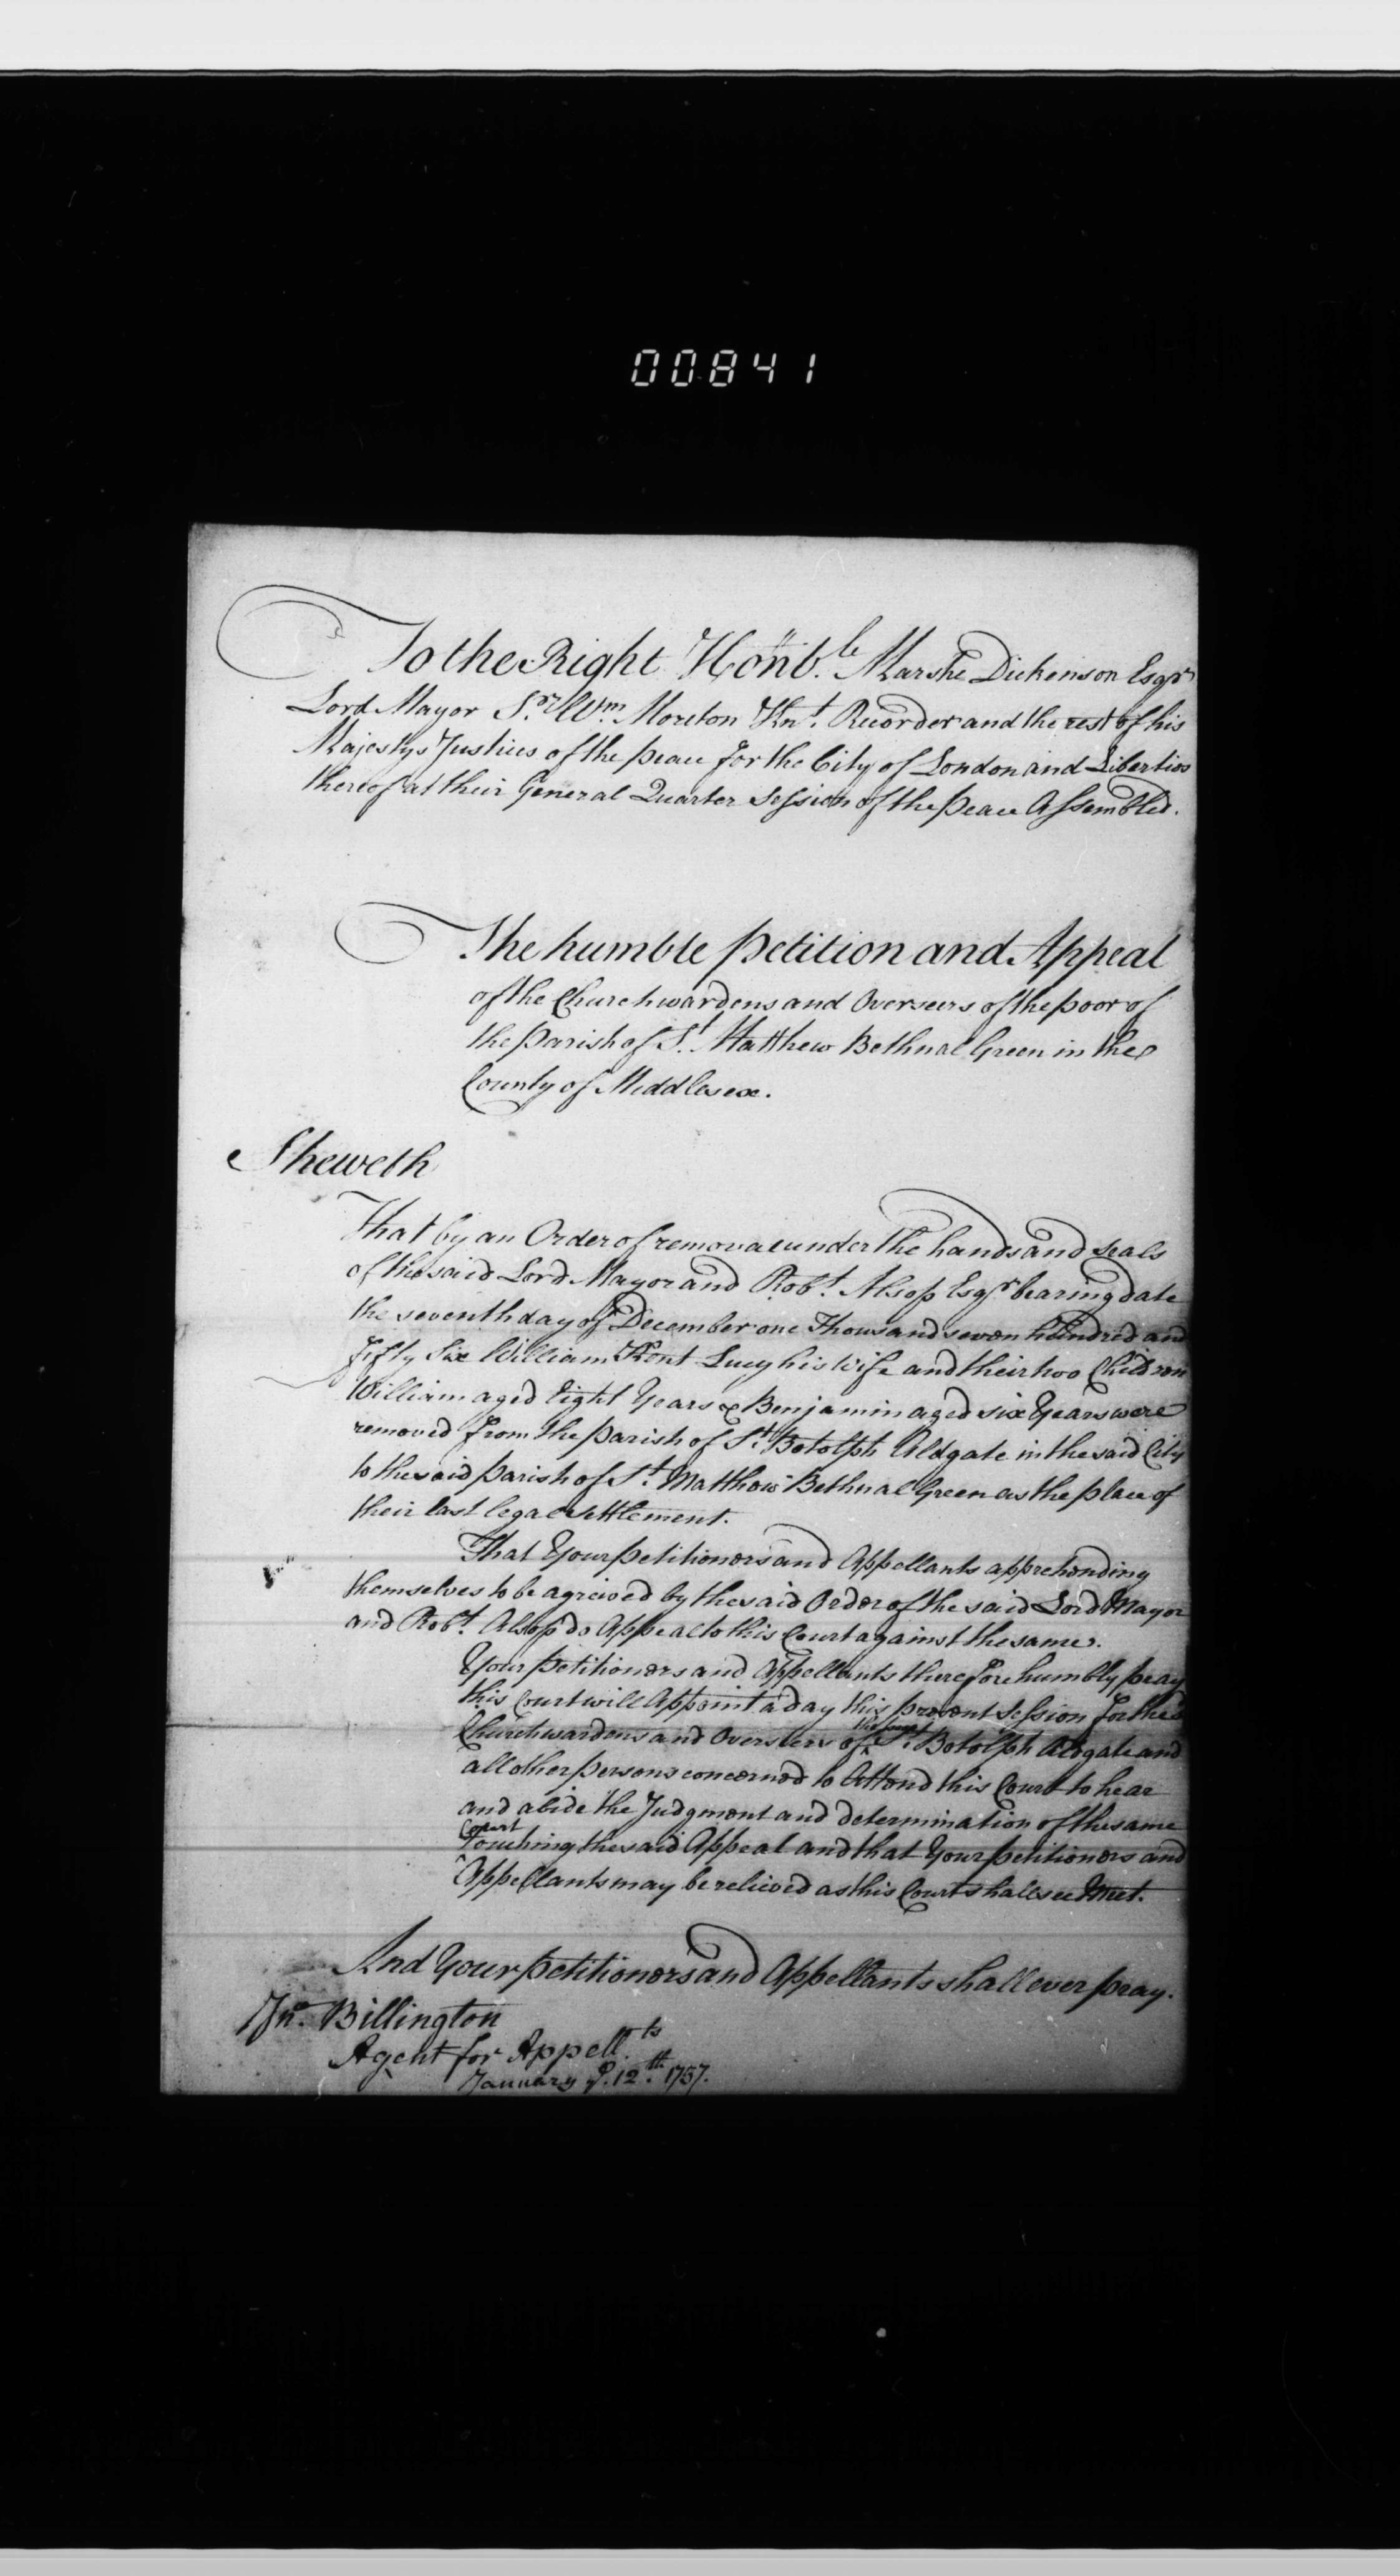 00841
To the Right Honb.le Marshe Dickinson Esqr
Lord Mayor S.r Wm. Moreton Knt. Recorder and the rest of his
Majestys Justices of the peace for the City of London and Liberties
thereof at their General Quarter Session of the peace Assembled.
The humble petition and Appeal
of the Churchwardens and Overseers of the poor of
the parish of St. Matthew Bethnal Green in the
County of Middlesex.
Sheweth
That by an Order of removal under the hands and seals
of the said Lord Mayor and Robt. Alsop Esqr. bearing date
the seventh day of December one Thousand seven hundred and
fifty Six William Kent Lucy his Wife and their two Children
William aged Eight Years & Benjamin aged six Years were
removed from the parish of St. Botolph Aldgate in the said City
to the said parish of St. Matthew Bethnal Green as the place of
their last legal settlement.
That Your petitioners and Appellants apprehending
themselves to be agreived by the said Order of the said Lord Mayor
and Robt. Alsop do Appeal to this Court against the same.
Your petitioners and Appellants therefore humbly pray
this Court will Appoint a day this present Session for the
Churchwardens and Overseers of St. Botolph Aldgate and
all other persons concerned to Attend this Court to hear
and abide the Judgment and determination of the same
Court
Touching the said Appeal and that Your petitioners and
Appellants may be relieved as this Court shall see meet.
And Your petitioners and Appellants shall ever pray.
Jno. Billington
Agent for Appell.ts
January 12.th 1757.